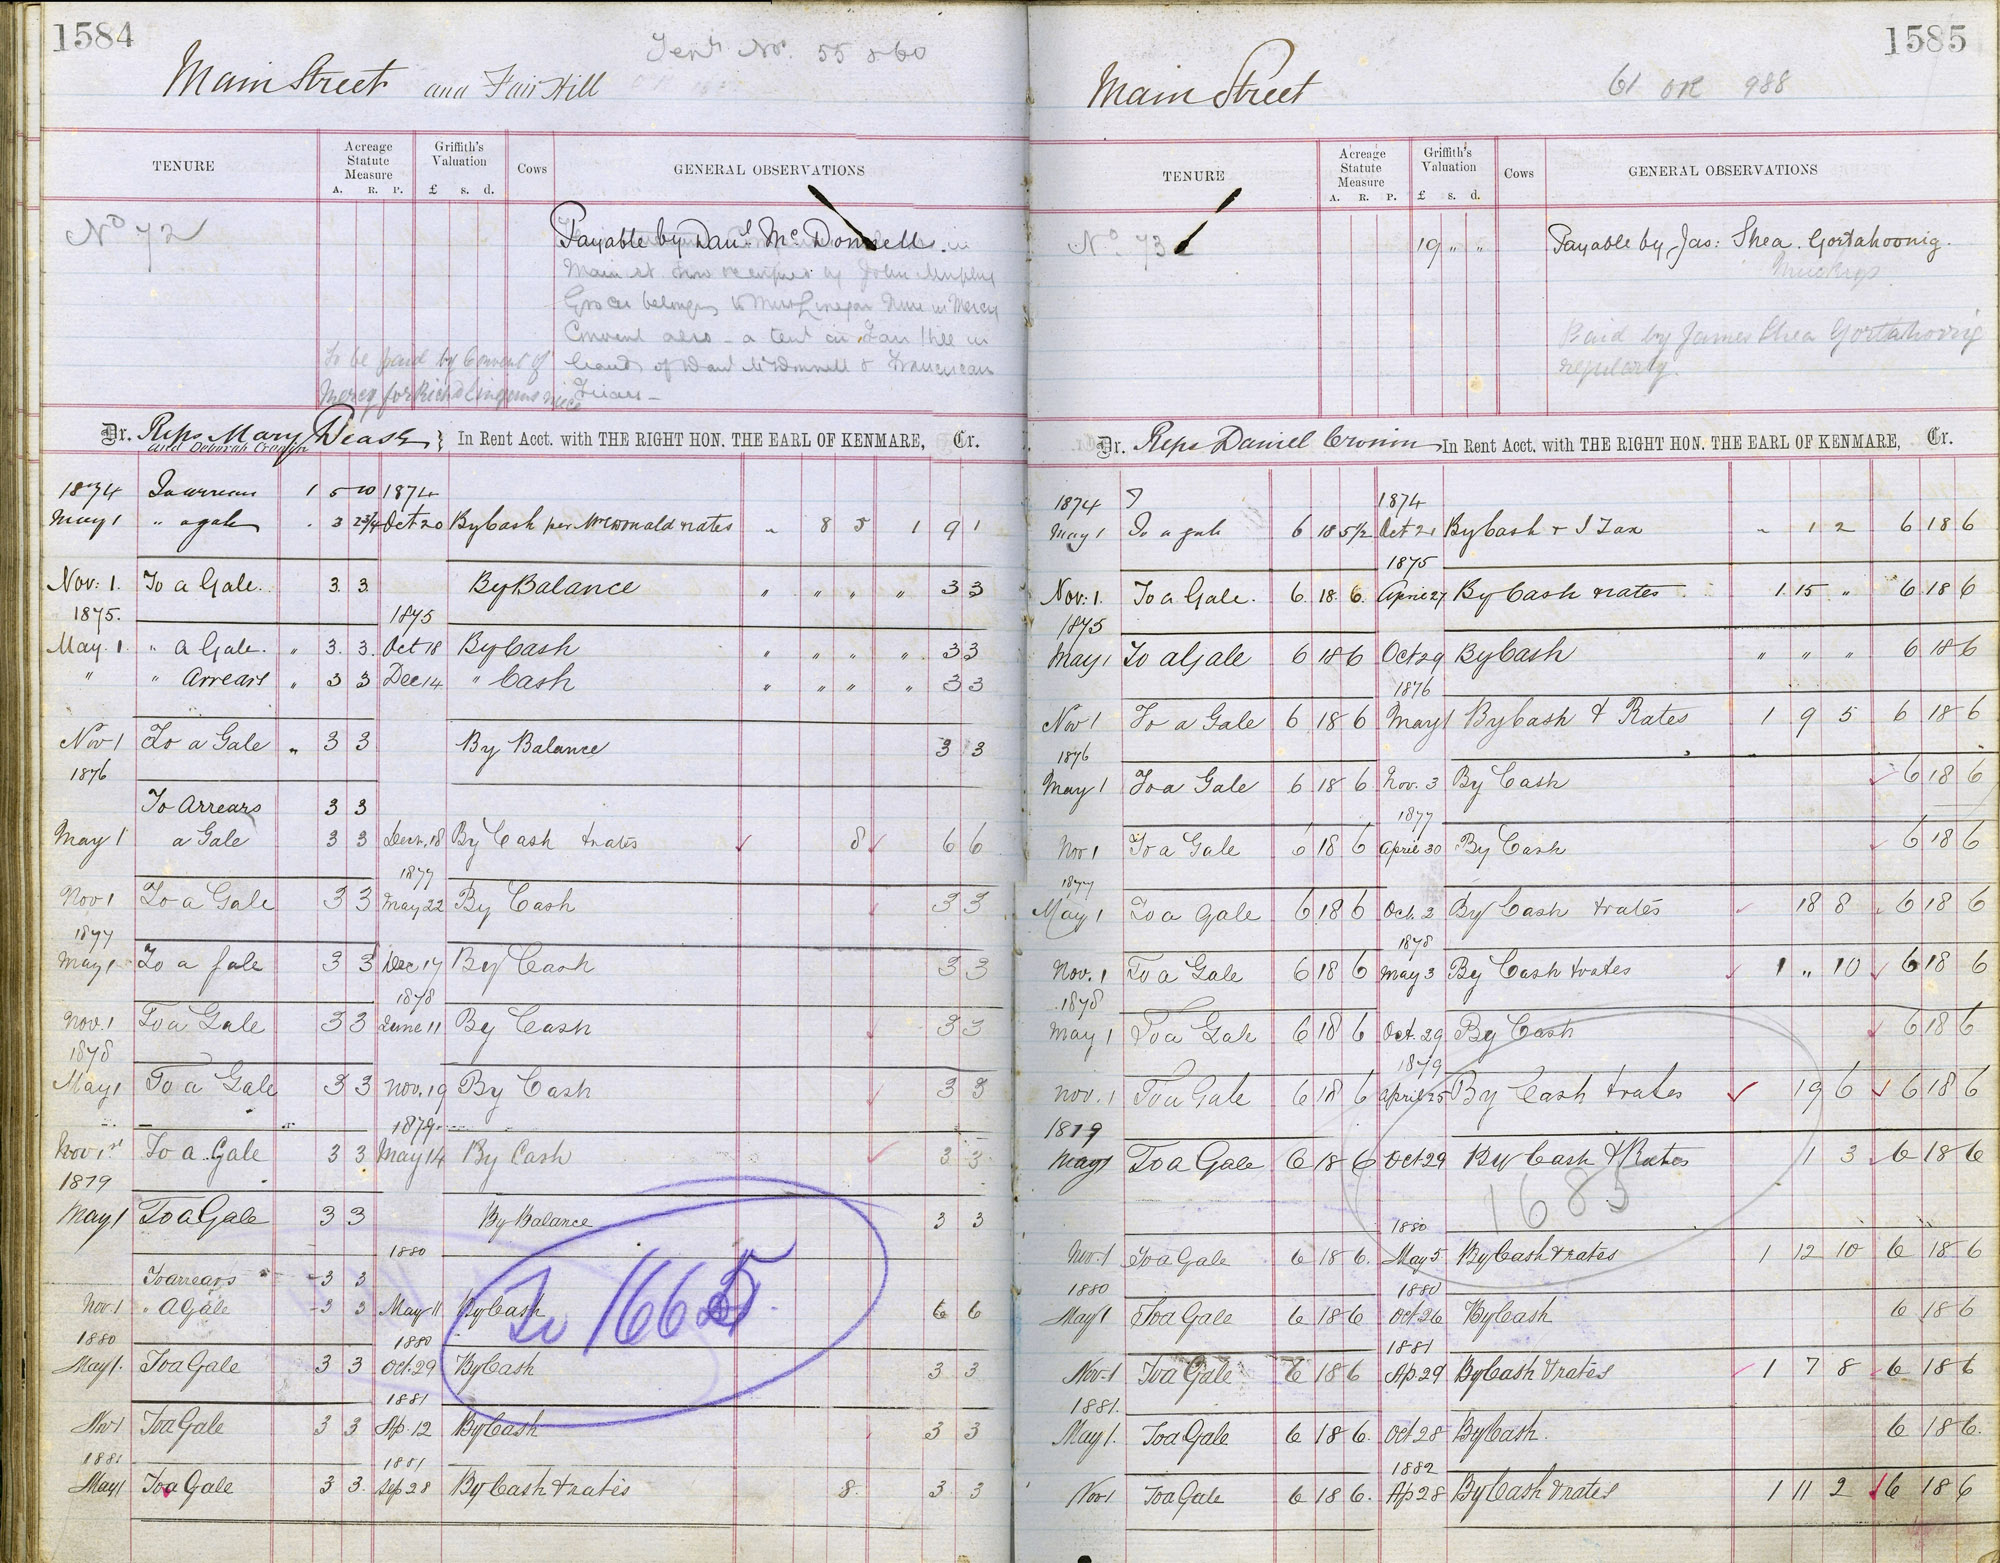 1584
Tents No. 55 & 60
Main Street and Fair Hill
TENURE
Acreage Statute Measure
A. R. P.
Griffith's Valuation
£ s. d.
Cows
GENERAL OBSERVATIONS
No 72
Payable by Danl. Mc Donnell.
Main st now occupied by John Murphy
Grocer belongs to Miss Linegan Nun in Mercy
Convent also a tent in Fair Hill in
hands of Danl McDonnell & Franciscan
Friars
To be paid by Convent of
Mercy for Richd Linguns niece
Dr. Reps Mary Deash } In Rent Acct. with THE RIGHT HON. THE EARL OF KENMARE, Cr.
and Deborah Cronin
1874 To arrears 1 5 10 1874
May 1 " a gale . 3 2 3/4 Oct 20 By Cash per McDonald & rates " 8 5 1 9 1
Nov: 1. To a Gale. 3. 3. By Balance " " " " 3 3
1875. 1875
May. 1. " a Gale. " 3. 3. Oct 18 By Cash " " " " 3 3
" " Arrears " 3 3 Dec 14 " Cash " " " " 3 3
Nov 1 To a Gale " 3 3 By Balance 3 3
1876
To Arrears 3 3
May 1 a Gale 3 3 Decr. 18 By Cash & rates 8 6 6
1877
Nov 1 To a Gale 3 3 May 22 By Cash 3 3
1877
May 1 To a Gale 3 3 Dec 17 By Cash 3 3
1878
Nov. 1 To a Gale 3 3 June 11 By Cash 3 3
1878
May 1 To a Gale 3 3 Nov. 19 By Cash 3 3
1879
Nov 1st To a Gale 3 3 May 14 By Cash 3 3
1879
May 1 To a Gale 3 3 By Balance 3 3
1880
To arrears 3 3
Nov. 1 " A Gale 3 3 May 11 By Cash 6 6
To 1665
1880 1880
May 1. To a Gale 3 3 Oct. 29 By Cash 3 3
1881
Nov 1 To a Gale 3 3 Ap. 12 By Cash 3 3
1881 1881
May 1 To a Gale 3 3. Sep 28 By Cash & rates 8. 3. 3
1585
61 OR 988
Main Street
TENURE
Acreage Statute Measure
A. R. P.
Griffith's Valuation
£ s. d.
Cows
GENERAL OBSERVATIONS
No. 73
19 " "
Payable by Jas: Shea. Gortahoonig.
Muckross
Paid by James Shea Gortahoonig
regularly.
Dr. Reps Daniel Cronin In Rent Acct. with THE RIGHT HON. THE EARL OF KENMARE, Cr.
1874 1874
May 1 To a gale 6 18 5 1/2 Oct 21 By Cash & I Tax " 1 2 6 18 6
1875
Nov: 1. To a Gale. 6. 18. 6. April 27 By Cash & rates 1 15 " 6 18 6
1875
May 1 To a Gale 6 18 6 Oct 29 By Cash " " " 6 18 6
1876
Nov 1 To a Gale 6 18 6 May 1 By Cash & Rates 1 9 5 6 18 6
1876
May 1 To a Gale 6 18 6 Nov. 3 By Cash 6 18 6
1877
Nov 1 To a Gale 6 18 6 April 30 By Cash 6 18 6
1877
May 1 To a Gale 6 18 6 Oct. 2 By Cash & rates 18 8 6 18 6
1878
Nov. 1 To a Gale 6 18 6 May 3 By Cash & rates 1 " 10 6 18 6
1878
May 1 To a Gale 6 18 6 Oct. 29 By Cash 6 18 6
1879
Nov. 1 To a Gale 6 18 6 April 25 By Cash & rates 19 6 6 18 6
1879
May 1 To a Gale 6 18 6 Oct 29 By Cash & Rates 1 3 6 18 6
1685
1880
Nov. 1 To a Gale 6 18 6. May 5 By Cash & rates 1 12 10 6 18 6
1880 1880
May 1 To a Gale 6 18 6 Oct 26 By Cash 6 18 6
1881
Nov. 1 To a Gale 6 18 6 Ap 29 By Cash & rates 1 7 8 6 18 6
1881.
May 1. To a Gale 6 18 6. Oct 28 By Cash. 6 18 6.
1882
Nov 1 To a Gale 6 18 6. Ap 28 By Cash & rates 1 11 2 6 18 6